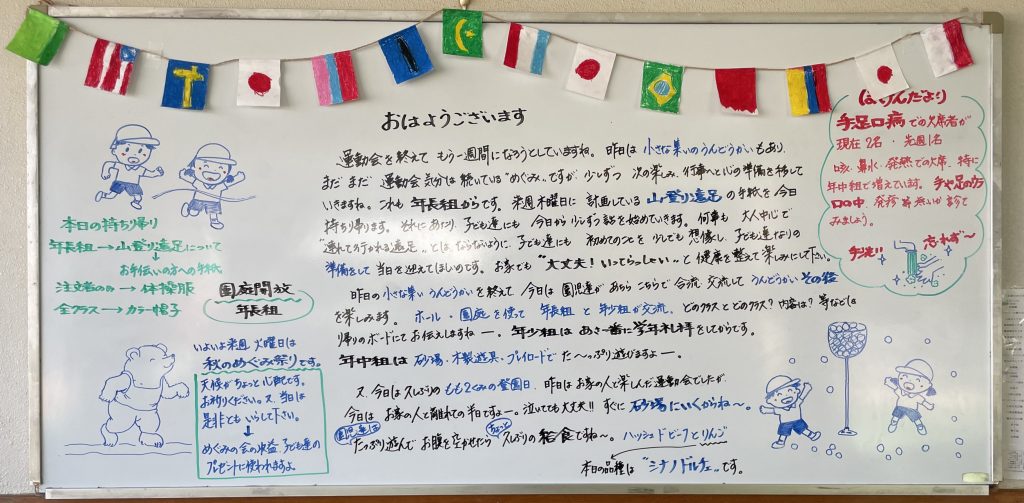 おはようございます
運動会を終えて もう一週間になろうとしていますね。昨日は 小さな集いのうんどうかいもあり、
まだまだ 運動会気分は続いている"めぐみ"ですが、少しずつ 次の楽しみ、行事へと心の準備を移して
いきますね。これも 年長組からです。来週木曜日に 計画している 山登り遠足 の手紙を今日
持ち帰ります。それにあたり、子ども達にも 今日から少しずつ話を始めていきます。何事も 大人中心で
"連れて行かれる遠足"とはならないように、子ども達にも 初めてのことを少しでも想像し、子ども達なりの
準備をして 当日を迎えてほしいのです。お家でも "大丈夫!いってらっしゃい"と健康を整えて楽しみにして下さい。
昨日の 小さな集い うんどうかいを終えて 今日は 園児達が あちらこちらで合流、交流して うんどうかいその後
を楽しみます。ホール・園庭を使って 年長組と年少組が交流、どのクラスとどのクラス?内容は?等などは
帰りのボードにてお伝えしますねー。年少組はあさ一番に学年礼拝をしてからです。
年中組は 砂場・木製遊具・プレイロードで た〜っぷり遊びますよー。
又、今日は久しぶりの もも2くみの登園日、昨日はお家の人と楽しんだ運動会でしたが、
今日は お家の人と離れての半日ですよー。泣いても大丈夫!!すぐに 砂場にいくからね〜。
園児達は
たっぷり遊んで お腹を空かせたら ちょっと 久しぶりの 給食ですね〜。ハッシュドビーフとりんご
本日の品種は"シナノドルチェ"です。
本日の持ち帰り
年長組→山登り遠足について
↓
お手伝いの方への手紙
注文者のみ→体操服
全クラス→カラー帽子
園庭開放
年長組
いよいよ来週 火曜日は
秋のめぐみ祭りです。
天候がちょっと心配です。
お祈りください。又、当日は
是非ともいらして下さい。
↓
めぐみの会の収益、子ども達の
プレゼントに使われますよ。
ほけんだより
手足口病での欠席者が
現在2名・先週1名
咳・鼻水・発熱での欠席、特に
年中組で増えています。手や足の
口の中、発疹等無いか診て
みましょう。
手洗い 忘れず〜